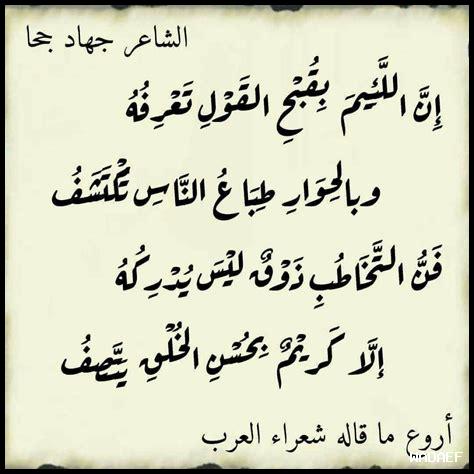 الشاعر جهاد جحا
إِنَّ اللَّئِيمَ بِقُبْحِ القَوْلِ تَعْرِفُهُ
وبالحِوَارِ طِبَاعُ النَّاسِ تُكْتَشَفُ
فَنُّ التَّخَاطُبِ ذَوْقٌ لَيْسَ يُدْرِكُهُ
إلَّا كَرِيْمٌ بِحُسْنِ الخُلْقِ يَتَّصِفُ
أروع ما قاله شعراء العرب
WADAEF